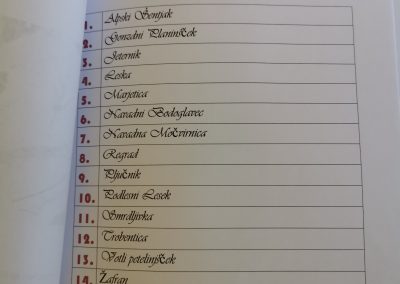 1. Alpski Šentjak
2. Gonzdni Planinšček
3. Jeternik
4. Leska
5. Marjetica
6. Navadni Bodoglavec
7. Navadna Močvirnica
8. Regrad
9. Pljučnik
10. Podlesni Lesek
11. Smrdljivka
12. Trobentica
13. Votli petelinjšček
14. Žafran